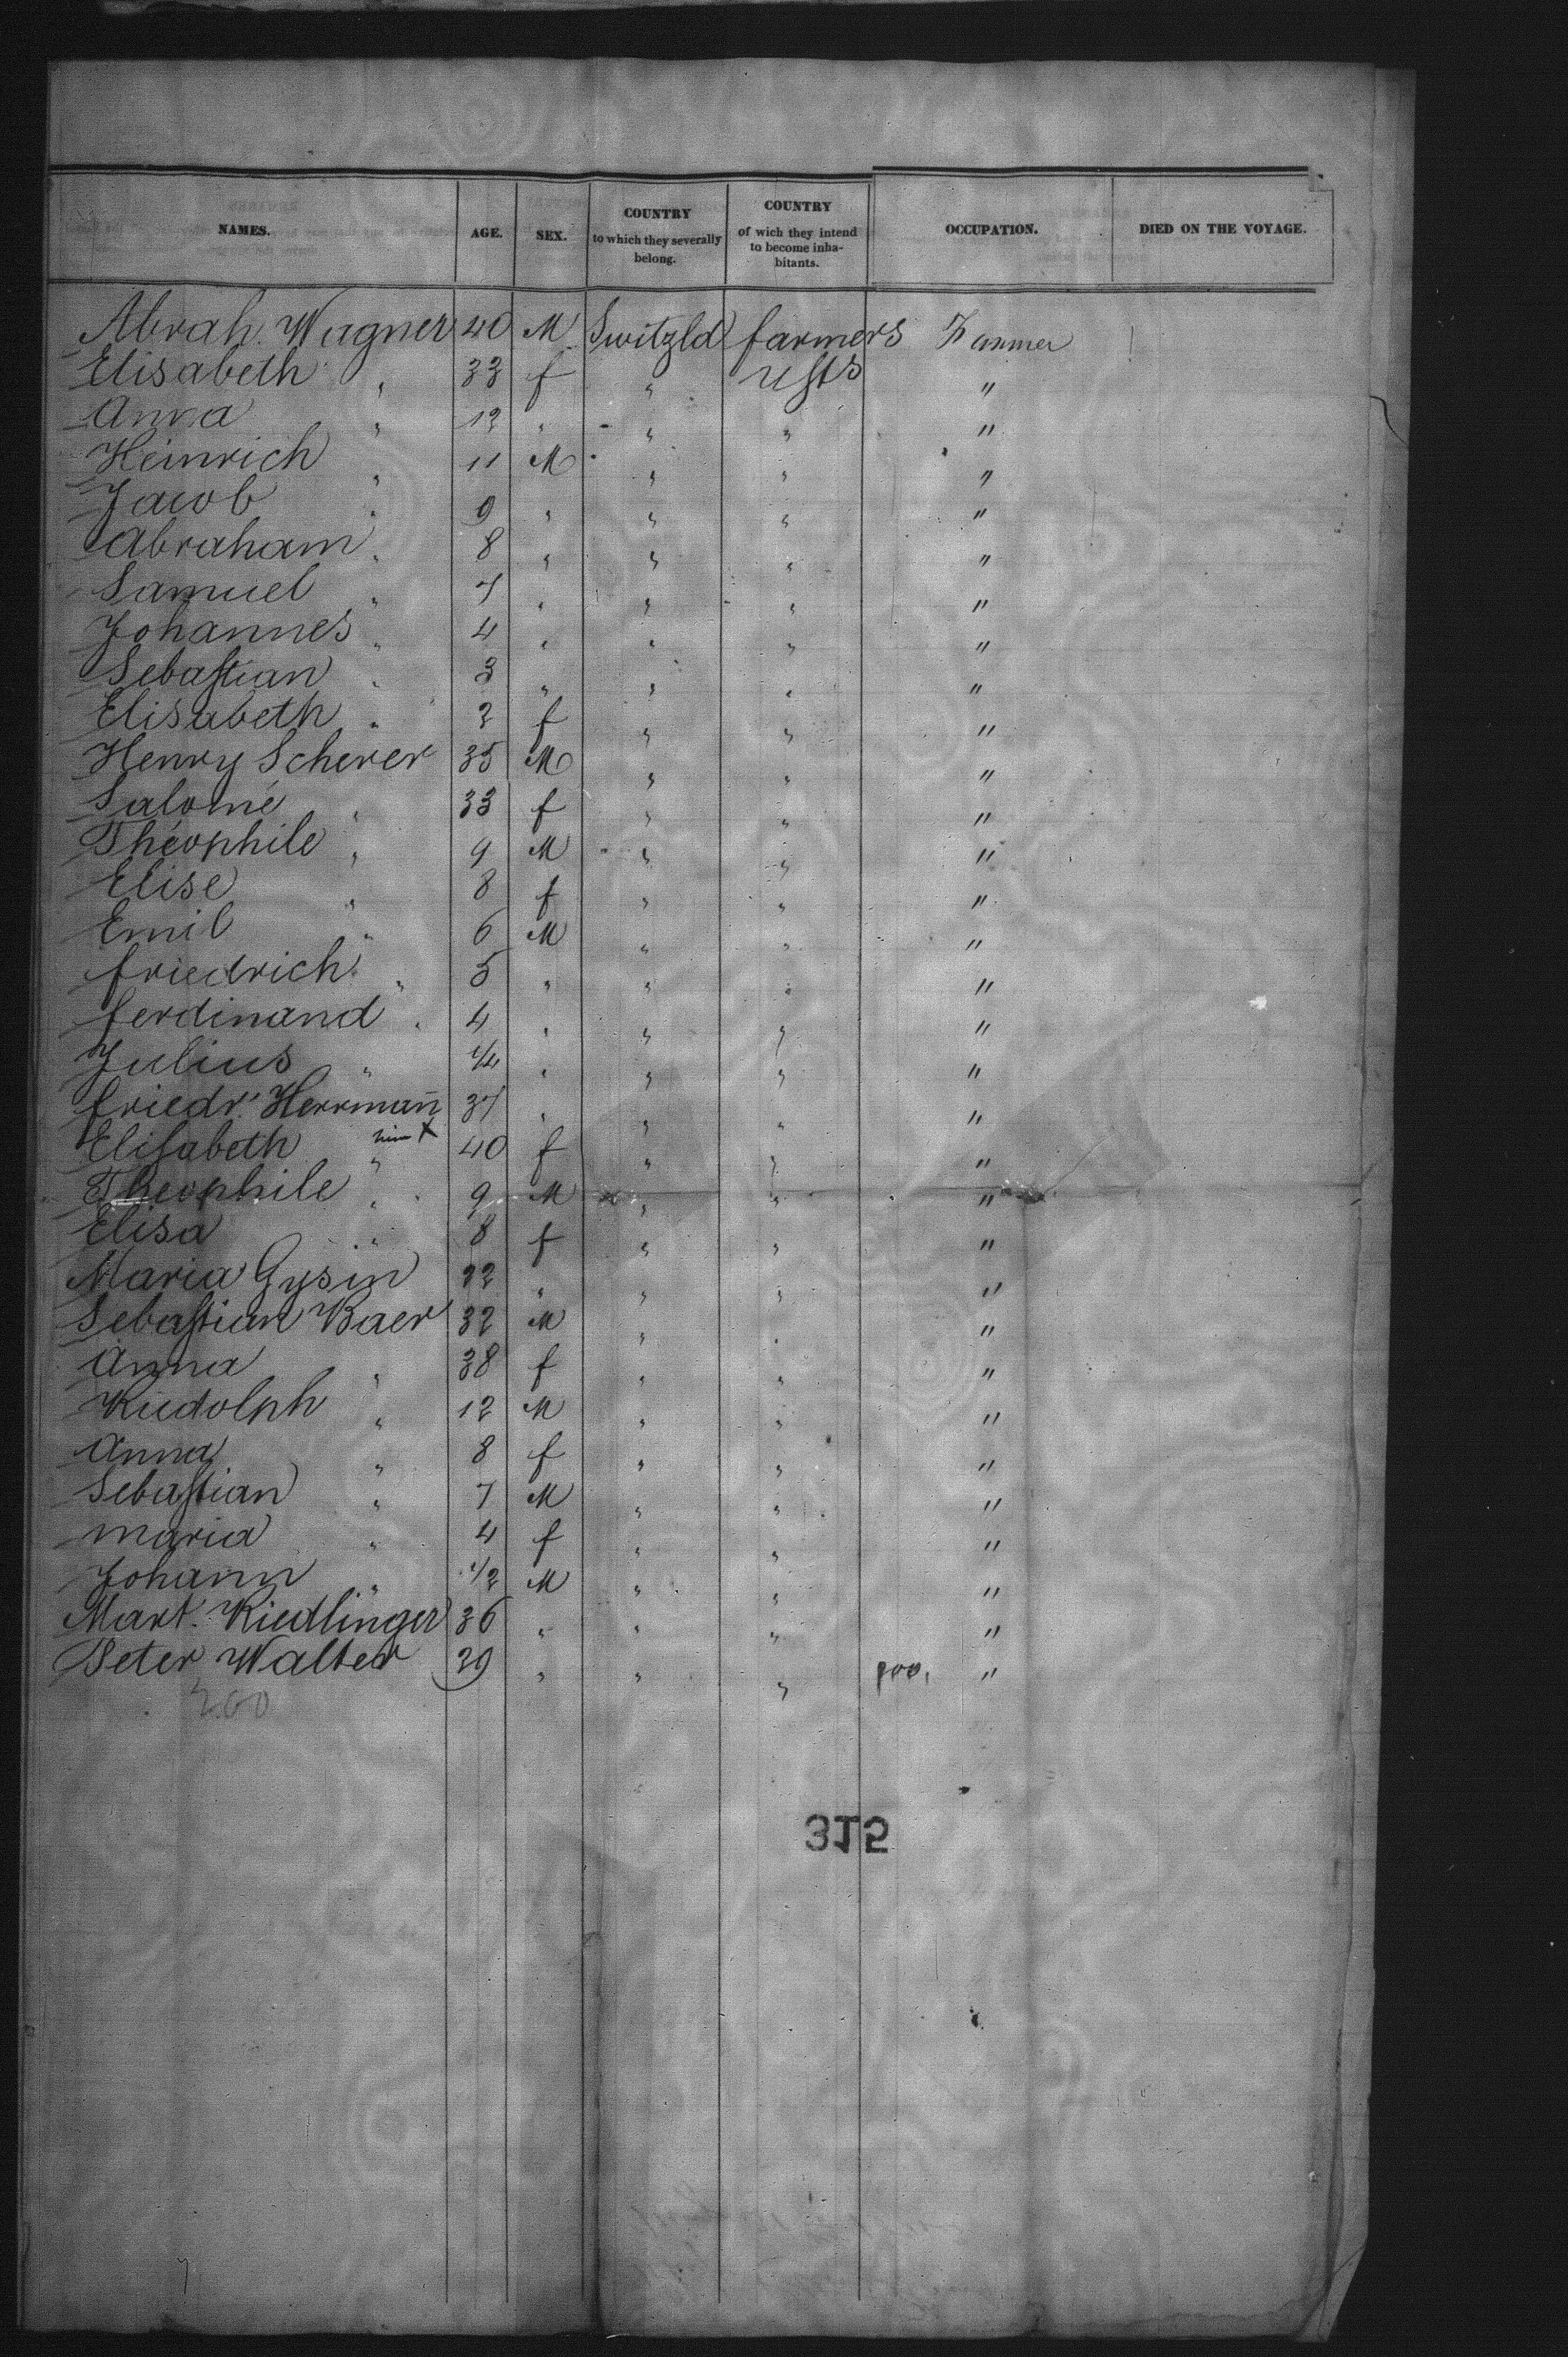 NAMES. AGE. SEX. COUNTRY to which they severally belong. COUNTRY of wich they intend to become inhabitants. OCCUPATION. DIED ON THE VOYAGE.
Abrah. Wagner 40 M Switzld farmers Farmer
Elisabeth " 33 f " USts "
Anna " 12 " " " "
Heinrich " 11 M " " "
Jacob " 9 " " " "
Abraham " 8 " " " "
Samuel " 7 " " " "
Johannes " 4 " " " "
Sebastian " 3 " " " "
Elisabeth " 2 f " " "
Henry Scherer 35 M " " "
Salomé " 33 f " " "
Théophile " 9 M " " "
Elise " 8 f " " "
Emil " 6 M " " "
friedrich " 5 " " " "
ferdinand " 4 " " " "
Julius " 1/4 " " " "
friedr. Herrmañ 37 " " " "
Elisabeth " X 40 f " " "
Theophile " 9 M " " "
Elisa " 8 f " " "
Maria Gysin 22 " " " "
Sebastian Baer 32 M " " "
Anna " 38 f " " "
Rudolph " 12 M " " "
Anna " 8 f " " "
Sebastian " 7 M " " "
Maria " 4 f " " "
Johann " 1/2 M " " "
Mart. Riedlinger 36 " " " "
Peter Walter 29 " " " "
200
315